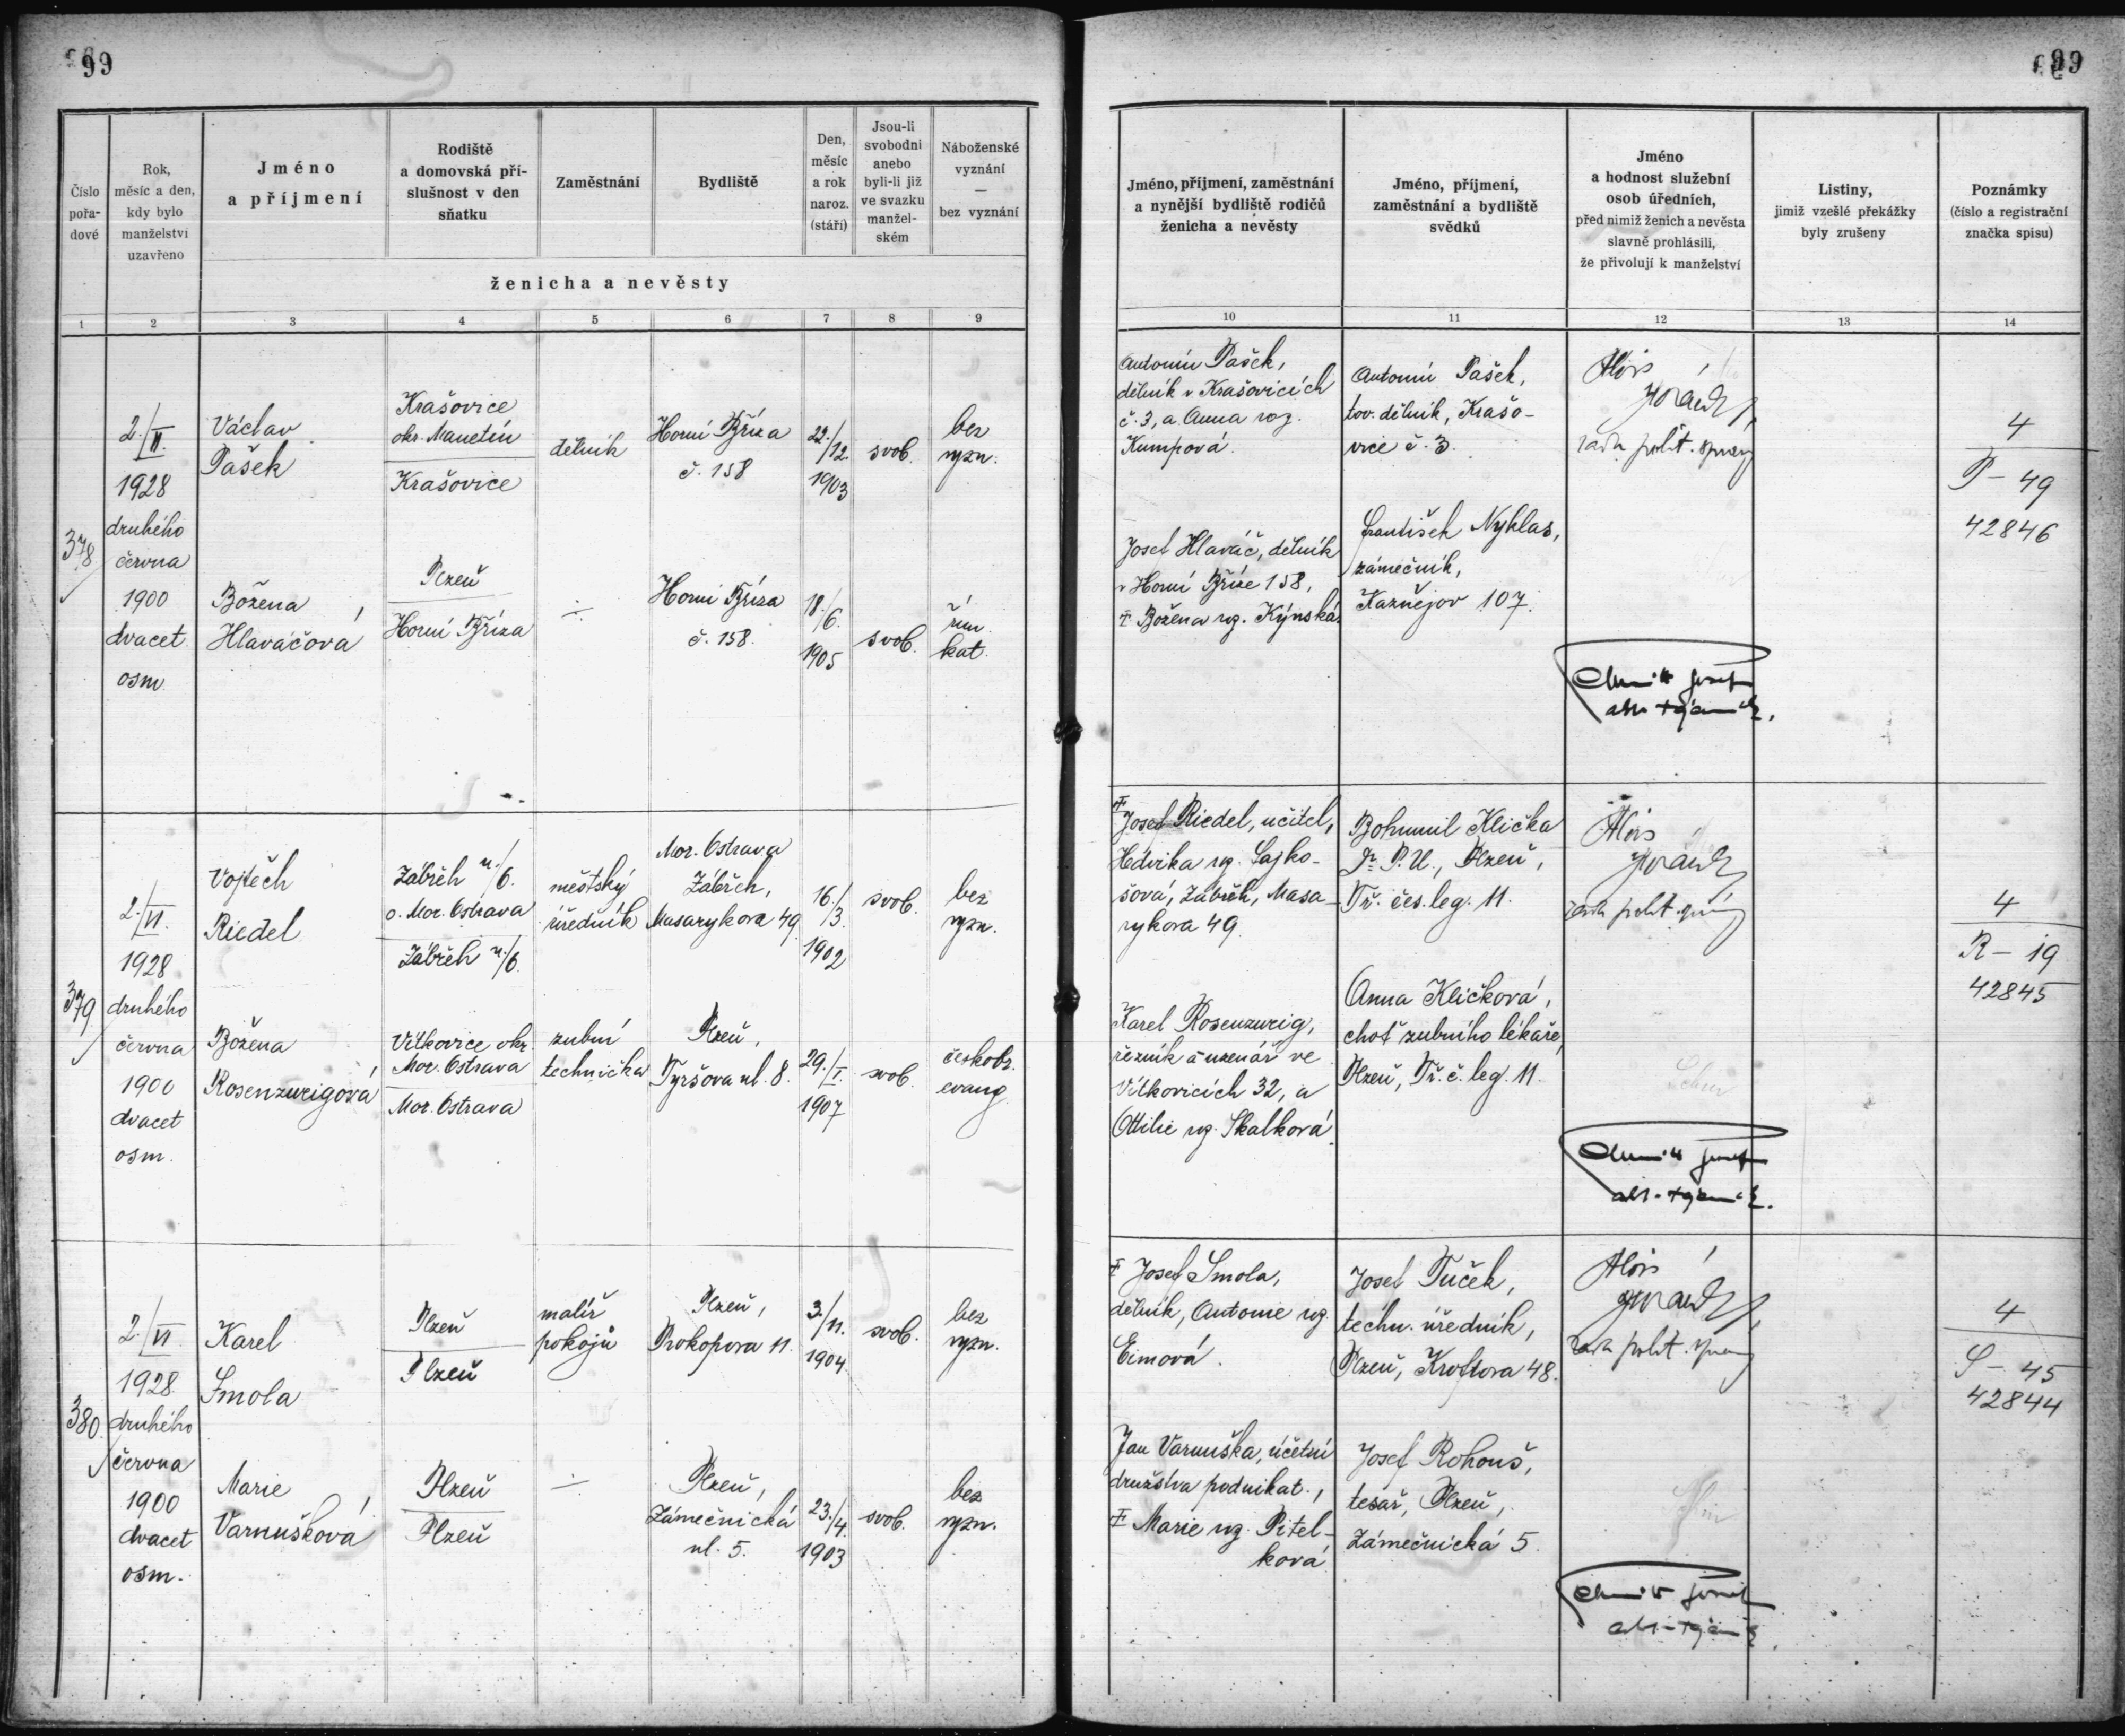 99
99
Číslo
pořa-
dové
Rok,
měsíc a den,
kdy bylo
manželství
uzavřeno
Jméno
a příjmení
Rodiště
a domovská pří-
slušnost v den
sňatku
Zaměstnání
Bydliště
Den,
měsíc
a rok
naroz.
(stáří)
Jsou-li
svobodni
anebo
byli-li již
ve svazku
manžel-
ském
Náboženské
vyznání
—
bez vyznání
ženicha a nevěsty
1 2 3 4 5 6 7 8 9
Jméno, příjmení, zaměstnání
a nynější bydliště rodičů
ženicha a nevěsty
Jméno, příjmení,
zaměstnání a bydliště
svědků
Jméno
a hodnost služební
osob úředních,
před nimiž ženich a nevěsta
slavně prohlásili,
že přivolují k manželství
Listiny,
jimiž vzešlé překážky
byly zrušeny
Poznámky
(číslo a registrační
značka spisu)
10 11 12 13 14
378
2./VI.
1928
druhého
června
1900
dvacet
osm
Václav
Pašek
Krašovice
okr. Manetín
Krašovice
dělník
Horní Bříza
č. 158
22./12.
1903
svob.
bez
vyzn.
Božena
Hlaváčová
Plzeň
Horní Bříza
÷
Horní Bříza
č. 158.
18./6.
1905
svob.
řím.
kat.
Antonín Pašek,
dělník v Krašovicích
č. 3, a Anna roz.
Kumpová.
Josef Hlaváč, dělník
v Horní Bříze 158,
‡ Božena rz. Kýnská.
Antonín Pašek,
tov. dělník, Krašo-
vice č. 3.
František Nyklas,
zámečník,
Kaznějov 107.
Alois
rada polit. správy
Josef
4
P – 49
42846
379.
2./VI.
1928
druhého
června
1900
dvacet
osm.
Vojtěch
Riedel
Zábřeh n./O.
o. Mor. Ostrava
Zábřeh n./O.
městský
úředník
Mor. Ostrava
Zábřeh,
Masarykova 49
16./3.
1902
svob.
bez
vyzn.
Božena
Rosenzweigová
Vítkovice okr.
Mor. Ostrava
Mor. Ostrava
zubní
technička
Plzeň,
Tyršova ul. 8.
29./I.
1907
svob.
českobr.
evang.
‡ Josef Riedel, učitel,
Hedvika rz. Lajko-
šová, Zábřeh, Masa-
rykova 49.
Karel Rosenzweig,
řezník a uzenář ve
Vítkovicích 32, a
Ottilie rz. Skalková.
Bohumil Klička
Dr. P. U., Plzeň,
Tř. čes. leg. 11.
Anna Kličková,
choť zubního lékaře,
Plzeň, Tř. č. leg. 11.
Alois
rada polit. správy
Josef
4
R – 19
42845
380.
2./VI.
1928.
druhého
června
1900
dvacet
osm.
Karel
Smola
Plzeň
Plzeň
malíř
pokojů
Plzeň,
Prokopova 11.
3./11.
1904.
svob.
bez
vyzn.
Marie
Varnušková
Plzeň
Plzeň
÷
Plzeň,
Zámečnická
ul. 5.
23./4.
1903
svob.
bez
vyzn.
‡ Josef Smola,
dělník, Antonie rz.
Eimová.
Jan Varnuška, účetní
družstva podnikat.,
‡ Marie rz. Pitel-
ková
Josef Tuček,
techn. úředník,
Plzeň, Kroftova 48.
Josef Rohouš,
tesař, Plzeň,
Zámečnická 5.
Alois
rada polit. správy
Josef
4
S – 45
42844